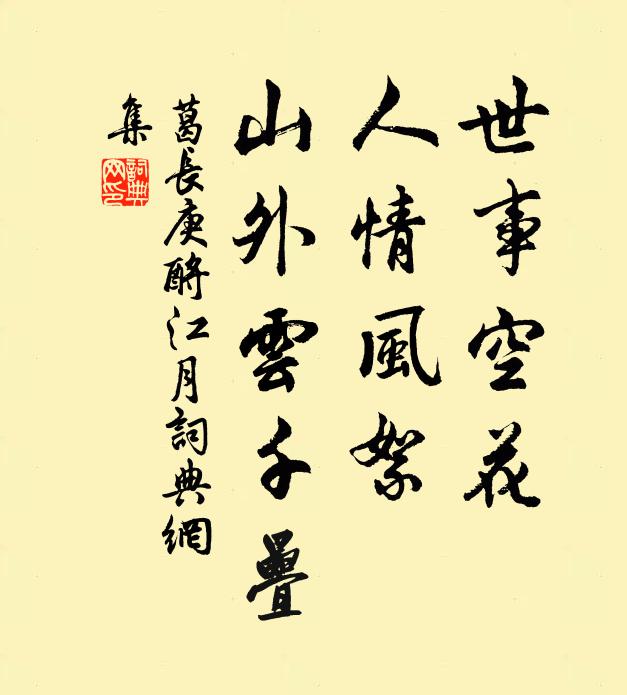 世事空花
人情風絮
山外雲千疊
葛長庚酹江月詞典網
集
詞典
網印